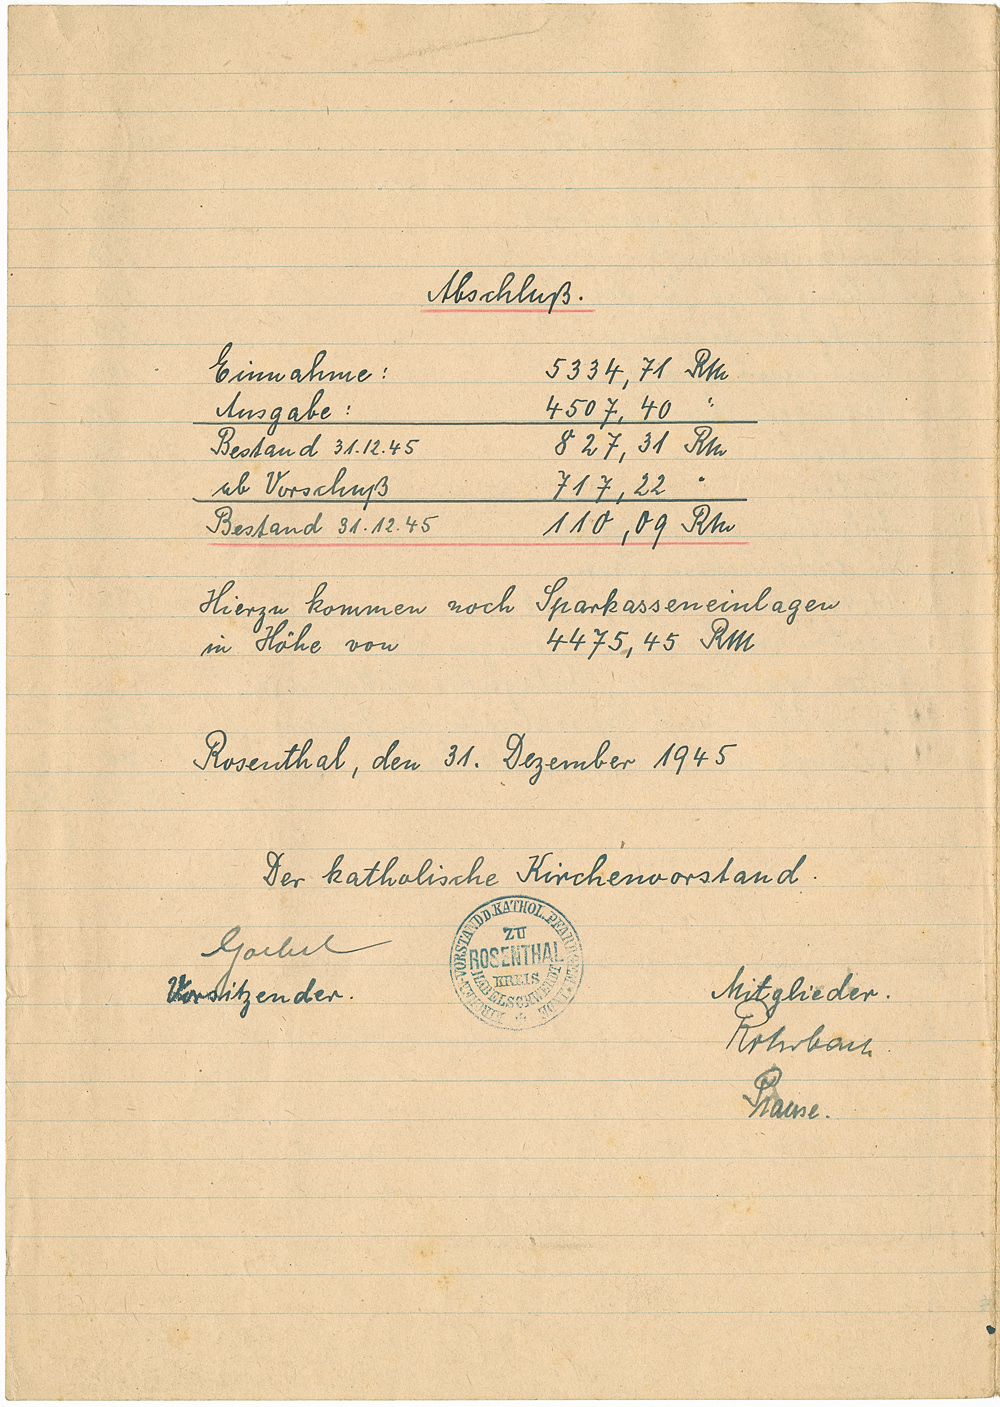 Abschluß.
Einnahme: 5334,71 RM
Ausgabe: 4507,40 "
Bestand 31.12.45 827,31 RM
ab Vorschuß 717,22 "
Bestand 31.12.45 110,09 RM
Hierzu kommen noch Sparkasseneinlagen
in Höhe von 4475,45 RM
Rosenthal, den 31. Dezember 1945
Der katholische Kirchenvorstand.
KIRCHEN-VORSTAND D. KATHOL. PFARRGEMEINDE
ZU
ROSENTHAL
KREIS
HABELSCHWERDT
Vorsitzender.
Mitglieder.
Rohrbach
Krause.